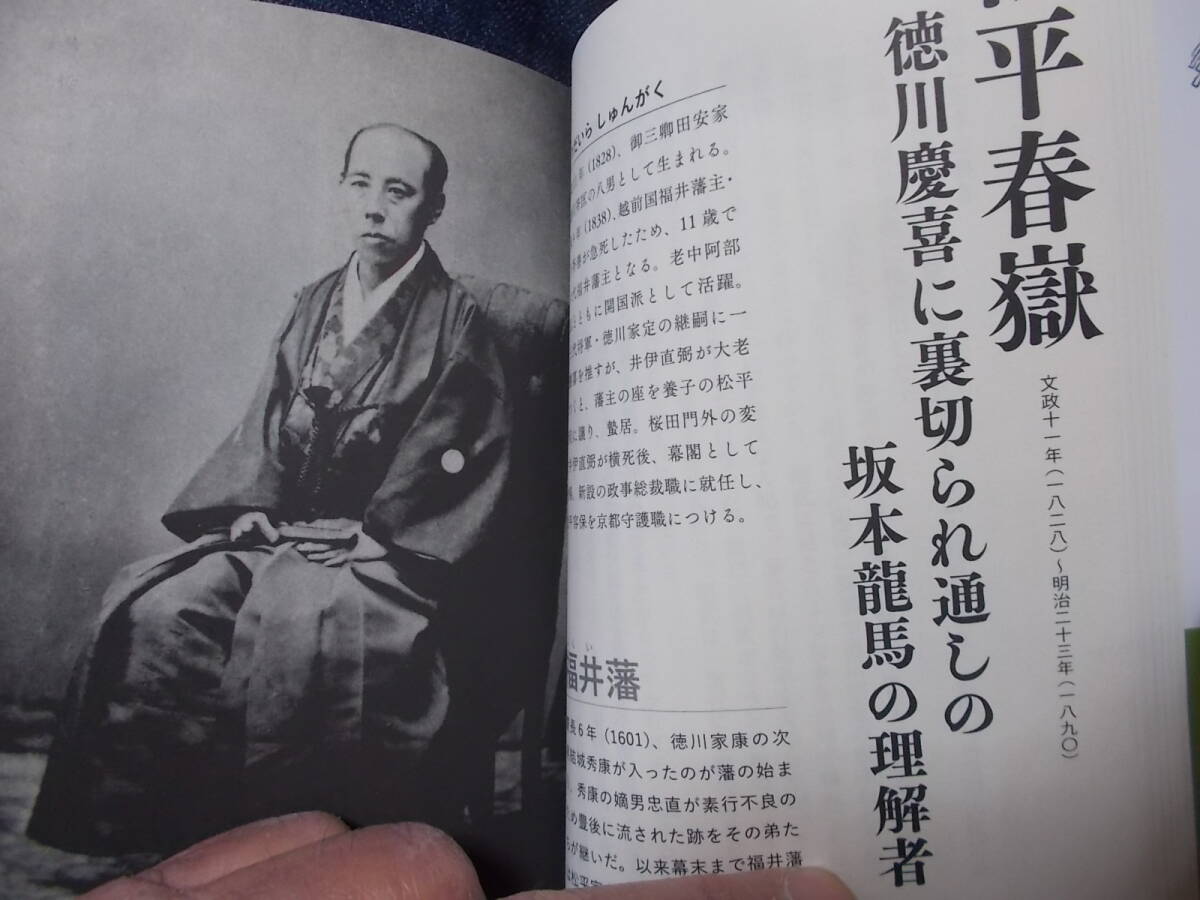 平春嶽
徳川慶喜に裏切られ通しの
坂本龍馬の理解者
文政十一年(一八二八)～明治二十三年(一八九〇)
だいら しゅんがく
年(1828)、御三卿田安家
の八男として生まれる。
年(1838)、越前国福井藩主・
が急死したため、11歳で
代福井藩主となる。老中阿部
とともに開国派として活躍。
代将軍・徳川家定の継嗣に一
を推すが、井伊直弼が大老
くと、藩主の座を養子の松平
に譲り、蟄居。桜田門外の変
井伊直弼が横死後、幕閣として
、新設の政事総裁職に就任し、
平容保を京都守護職につける。
い
福井藩
長6年(1601)、徳川家康の次
結城秀康が入ったのが藩の始ま
、秀康の嫡男忠直が素行不良の
め豊後に流された跡をその弟た
ちが継いだ。以来幕末まで福井藩
は松平家